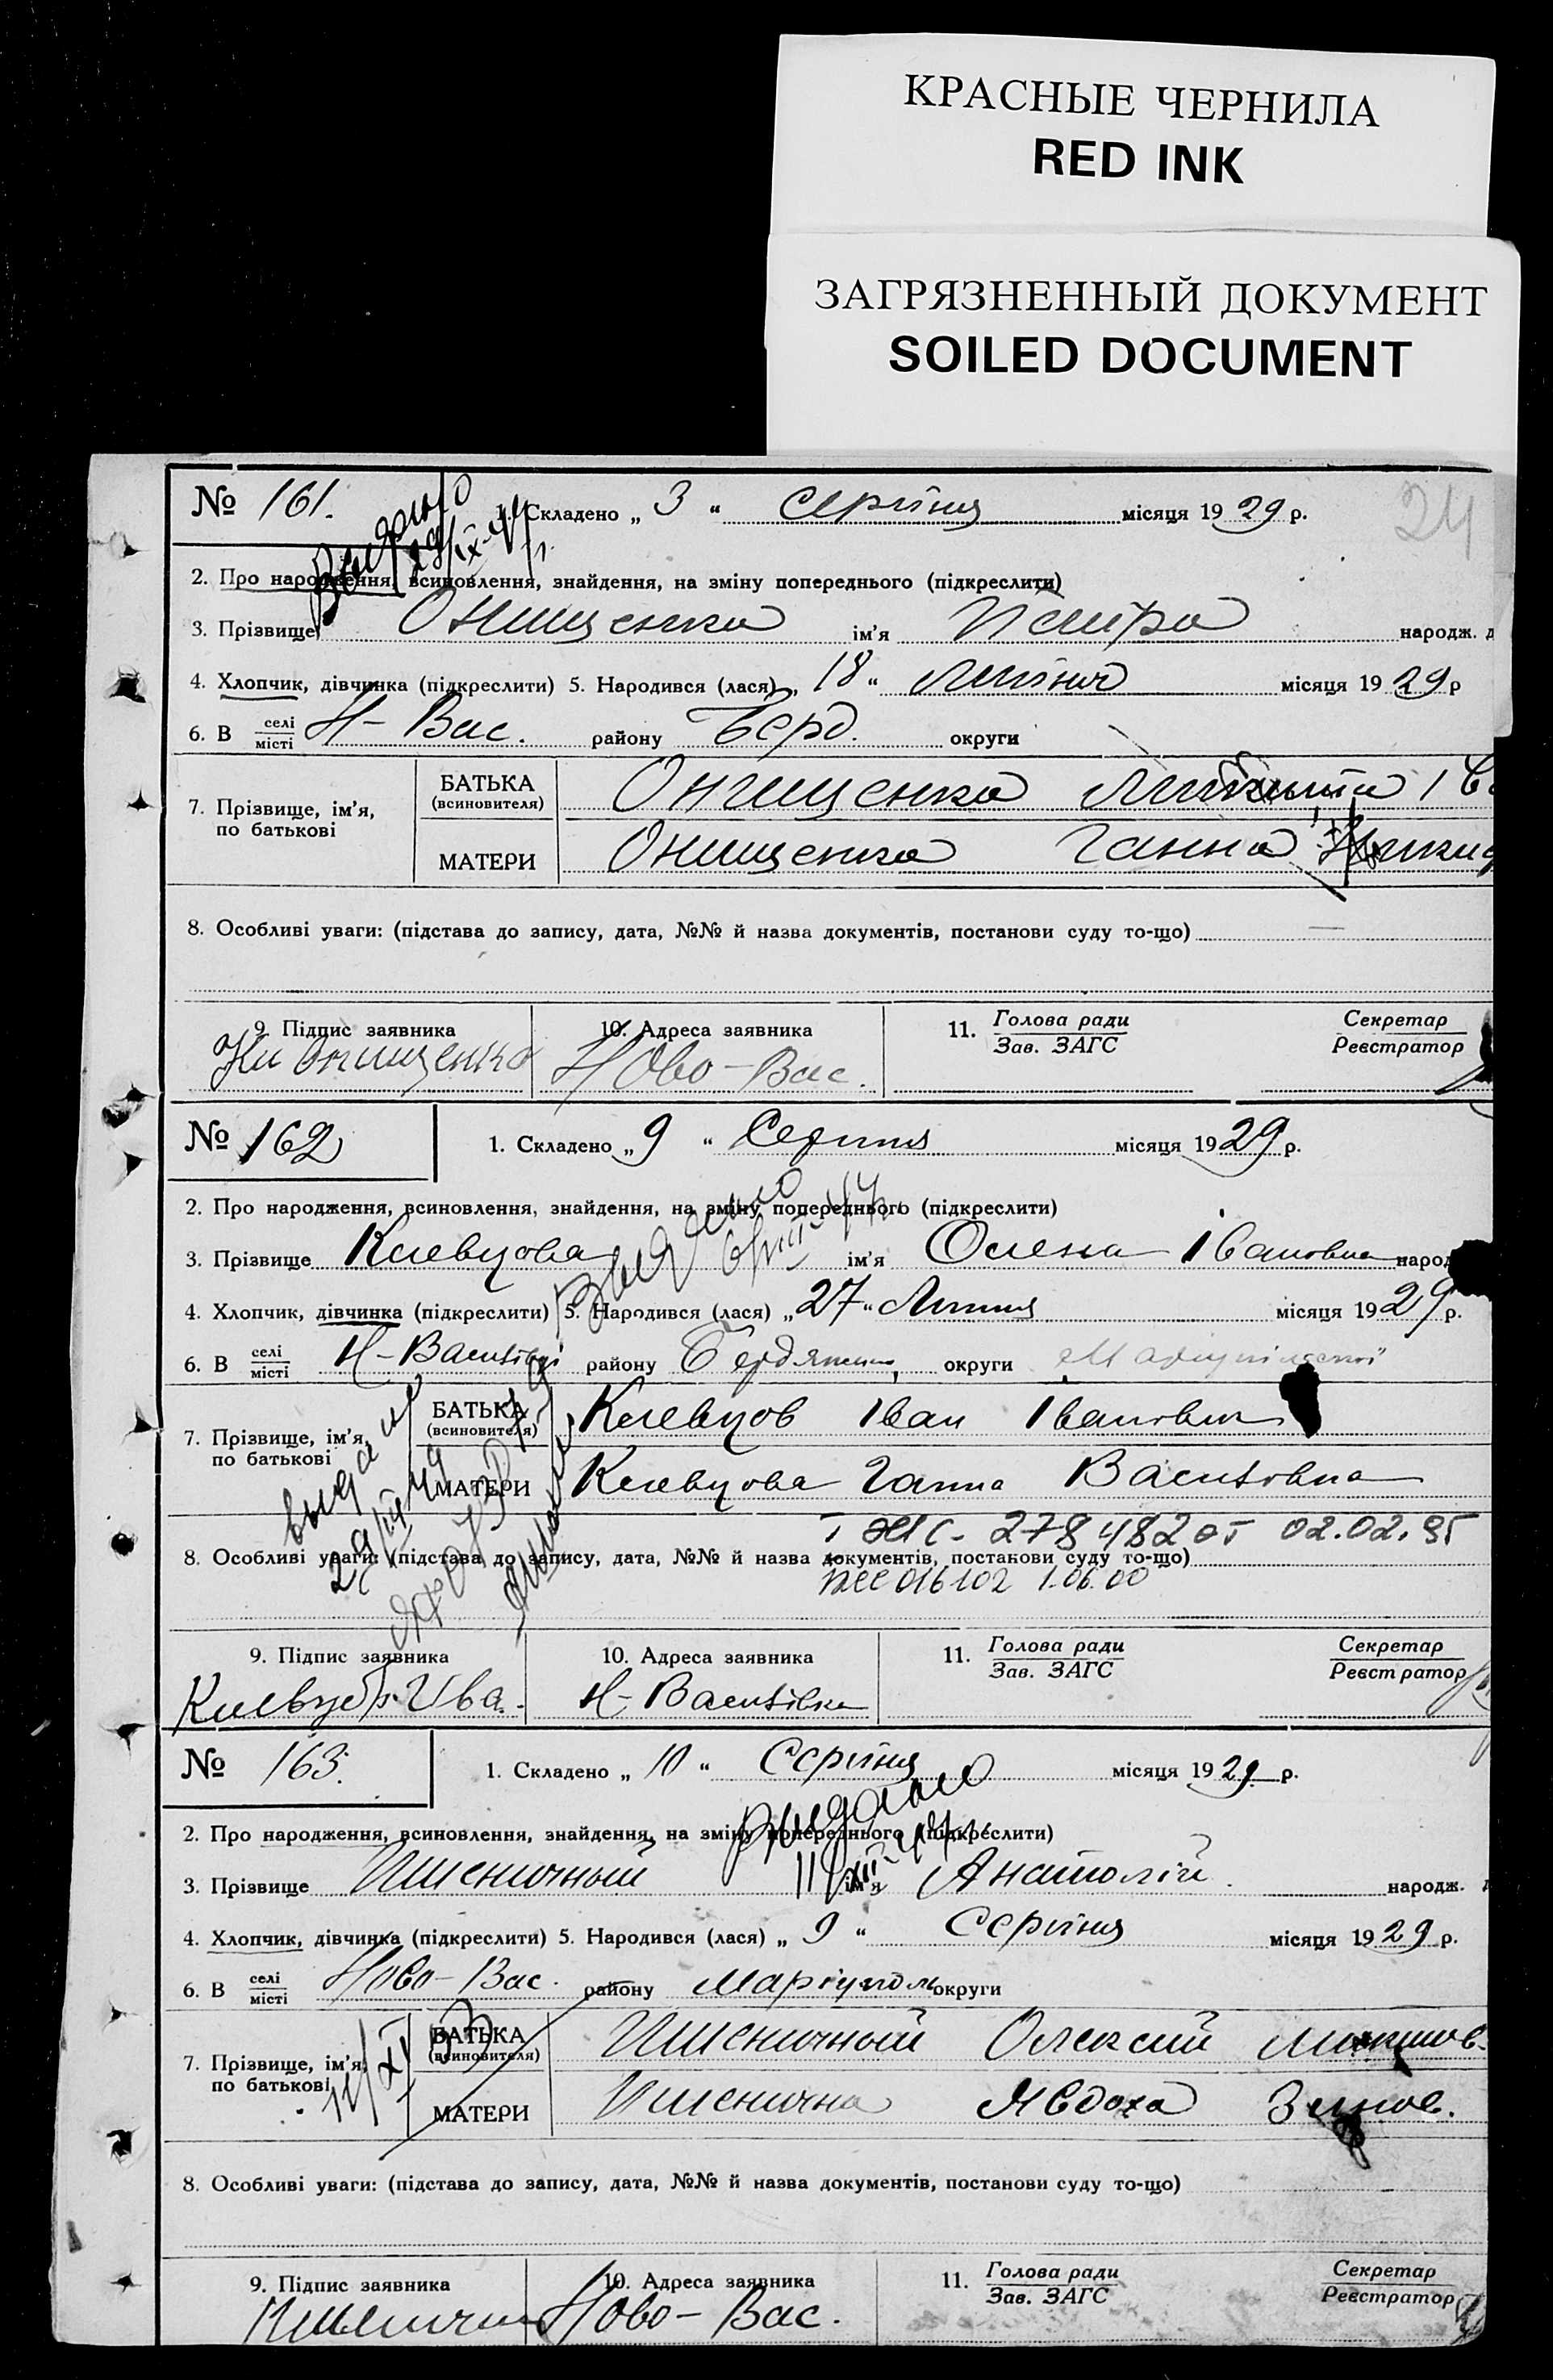 КРАСНЫЕ ЧЕРНИЛА
RED INK
ЗАГРЯЗНЕННЫЙ ДОКУМЕНТ
SOILED DOCUMENT
24
№ 161. Складено „ 3 “ Серпня місяця 19 29 р.
2. Про народження, всиновлення, знайдення, на зміну попереднього (підкреслити)
3. Прізвище Онищенко ім'я Петро народж.
4. Хлопчик, дівчинка (підкреслити) 5. Народився (лася) „ 18 “ Липня місяця 19 29 р
6. В селі/місті Н-Вас. району Берд. округи
7. Прізвище, ім'я, по батькові
БАТЬКА (всиновителя) Онищенко
МАТЕРИ Онищенко Ганна
8. Особливі уваги: (підстава до запису, дата, №№ й назва документів, постанови суду то-що) —
9. Підпис заявника 10. Адреса заявника 11. Голова ради/Зав. ЗАГС Секретар/Реєстратор
Онищенко Ново-Вас.
№ 162 1. Складено „ 9 “ Серпня місяця 19 29 р.
2. Про народження, всиновлення, знайдення, на зміну попереднього (підкреслити)
3. Прізвище Клевцова ім'я Олена Івановна народ
4. Хлопчик, дівчинка (підкреслити) 5. Народився (лася) „ 27 “ Липня місяця 19 29 р.
6. В селі/місті Н-Василівці району Бердянськ, округи Маріупільської
7. Прізвище, ім'я, по батькові
БАТЬКА (всиновителя) Клевцов Іван Іванович
МАТЕРИ Клевцова Ганна Василовна
278482 от 02.02.95
8. Особливі уваги: (підстава до запису, дата, №№ й назва документів, постанови суду то-що)
016102 1.06.00
9. Підпис заявника 10. Адреса заявника 11. Голова ради/Зав. ЗАГС Секретар/Реєстратор
Ива. Н-Василівка
№ 163. 1. Складено „ 10 “ Серпня місяця 19 29 р.
2. Про народження, всиновлення, знайдення, на зміну попереднього (підкреслити)
3. Прізвище Пшеничный ім'я Анатолій народж.
4. Хлопчик, дівчинка (підкреслити) 5. Народився (лася) „ 9 “ Серпня місяця 19 29 р.
6. В селі/місті Ново-Вас. району Маріуполь округи
7. Прізвище, ім'я, по батькові
БАТЬКА (всиновителя) Пшеничной Олексий
МАТЕРИ Пшенична Явдоха Зинов.
8. Особливі уваги: (підстава до запису, дата, №№ й назва документів, постанови суду то-що)
9. Підпис заявника 10. Адреса заявника 11. Голова ради/Зав. ЗАГС Секретар/Реєстратор
Ново-Вас.